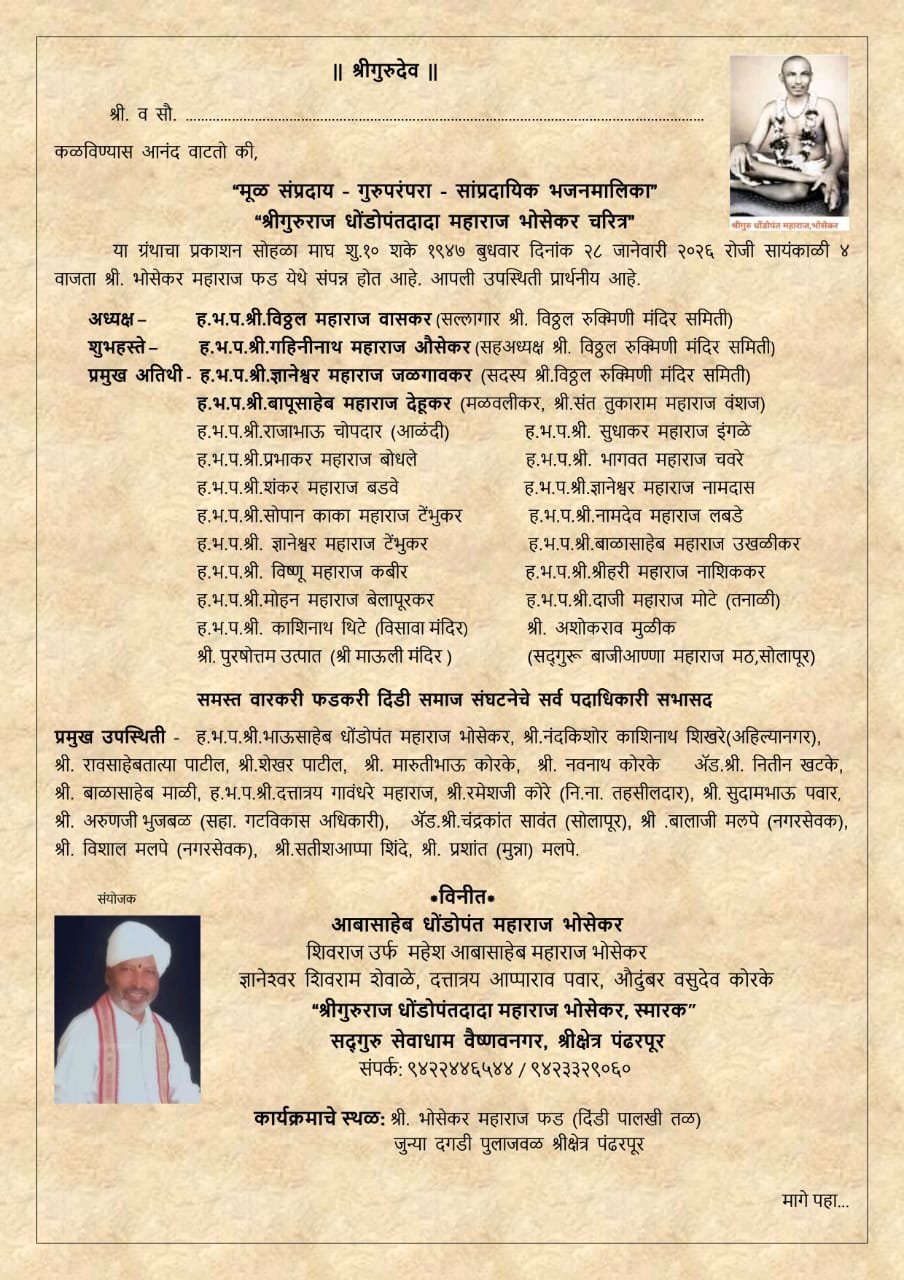 || श्रीगुरुदेव ||
श्री. व सौ. ........................................................................................................................
कळविण्यास आनंद वाटतो की,
श्रीगुरु धोंडोपंत महाराज,भोसेकर
“मूळ संप्रदाय - गुरुपरंपरा - सांप्रदायिक भजनमालिका”
“श्रीगुरुराज धोंडोपंतदादा महाराज भोसेकर चरित्र”
या ग्रंथाचा प्रकाशन सोहळा माघ शु.१० शके १९४७ बुधवार दिनांक २८ जानेवारी २०२६ रोजी सायंकाळी ४
वाजता श्री. भोसेकर महाराज फड येथे संपन्न होत आहे. आपली उपस्थिती प्रार्थनीय आहे.
अध्यक्ष – ह.भ.प.श्री.विठ्ठल महाराज वासकर (सल्लागार श्री. विठ्ठल रुक्मिणी मंदिर समिती)
शुभहस्ते – ह.भ.प.श्री.गहिनीनाथ महाराज औसेकर (सहअध्यक्ष श्री. विठ्ठल रुक्मिणी मंदिर समिती)
प्रमुख अतिथी - ह.भ.प.श्री.ज्ञानेश्वर महाराज जळगावकर (सदस्य श्री.विठ्ठल रुक्मिणी मंदिर समिती)
ह.भ.प.श्री.बापूसाहेब महाराज देहूकर (मळवलीकर, श्री.संत तुकाराम महाराज वंशज)
ह.भ.प.श्री.राजाभाऊ चोपदार (आळंदी) ह.भ.प.श्री. सुधाकर महाराज इंगळे
ह.भ.प.श्री.प्रभाकर महाराज बोधले ह.भ.प.श्री. भागवत महाराज चवरे
ह.भ.प.श्री.शंकर महाराज बडवे ह.भ.प.श्री.ज्ञानेश्वर महाराज नामदास
ह.भ.प.श्री.सोपान काका महाराज टेंभुकर ह.भ.प.श्री.नामदेव महाराज लबडे
ह.भ.प.श्री. ज्ञानेश्वर महाराज टेंभुकर ह.भ.प.श्री.बाळासाहेब महाराज उखळीकर
ह.भ.प.श्री. विष्णू महाराज कबीर ह.भ.प.श्री.श्रीहरी महाराज नाशिककर
ह.भ.प.श्री.मोहन महाराज बेलापूरकर ह.भ.प.श्री.दाजी महाराज मोटे (तनाळी)
ह.भ.प.श्री. काशिनाथ थिटे (विसावा मंदिर) श्री. अशोकराव मुळीक
श्री. पुरषोत्तम उत्पात (श्री माऊली मंदिर ) (सद्‌गुरू बाजीआण्णा महाराज मठ,सोलापूर)
समस्त वारकरी फडकरी दिंडी समाज संघटनेचे सर्व पदाधिकारी सभासद
प्रमुख उपस्थिती - ह.भ.प.श्री.भाऊसाहेब धोंडोपंत महाराज भोसेकर, श्री.नंदकिशोर काशिनाथ शिखरे(अहिल्यानगर),
श्री. रावसाहेबतात्या पाटील, श्री.शेखर पाटील, श्री. मारुतीभाऊ कोरके, श्री. नवनाथ कोरके ॲड.श्री. नितीन खटके,
श्री. बाळासाहेब माळी, ह.भ.प.श्री.दत्तात्रय गावंधरे महाराज, श्री.रमेशजी कोरे (नि.ना. तहसीलदार), श्री. सुदामभाऊ पवार,
श्री. अरुणजी भुजबळ (सहा. गटविकास अधिकारी), ॲड.श्री.चंद्रकांत सावंत (सोलापूर), श्री .बालाजी मलपे (नगरसेवक),
श्री. विशाल मलपे (नगरसेवक), श्री.सतीशआप्पा शिंदे, श्री. प्रशांत (मुन्ना) मलपे.
संयोजक
*विनीत*
आबासाहेब धोंडोपंत महाराज भोसेकर
शिवराज उर्फ महेश आबासाहेब महाराज भोसेकर
ज्ञानेश्वर शिवराम शेवाळे, दत्तात्रय आप्पाराव पवार, औदुंबर वसुदेव कोरके
“श्रीगुरुराज धोंडोपंतदादा महाराज भोसेकर, स्मारक”
सद्‌गुरु सेवाधाम वैष्णवनगर, श्रीक्षेत्र पंढरपूर
संपर्क: ९४२२४४६५४४ / ९४२३३२९०६०
कार्यक्रमाचे स्थळ: श्री. भोसेकर महाराज फड (दिंडी पालखी तळ)
जुन्या दगडी पुलाजवळ श्रीक्षेत्र पंढरपूर
मागे पहा...